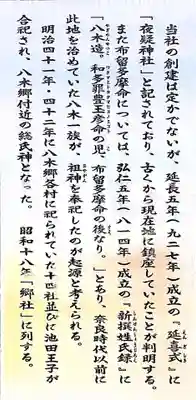 当社の創建は定かでないが、延長五年（九二七年）成立の『延喜式』に
「夜疑神社」と記されており、古くから現在地に鎮座していたことが判明する。
また布留多摩命については、弘仁五年（八一四年）成立の『新撰姓氏録』に
「八木造 和多羅豊玉彦命の児、布留多摩命の後なり。」とあり、奈良時代以前に
此地を治めていた八木一族が、祖神を奉祀したのが起源と考えられる。
明治四十一年・四十二年に八木郷各村に祀られていた十四社並びに池田王子が
合祀され、八木郷付近の総氏神となった。 昭和十八年「郷社」に列する。